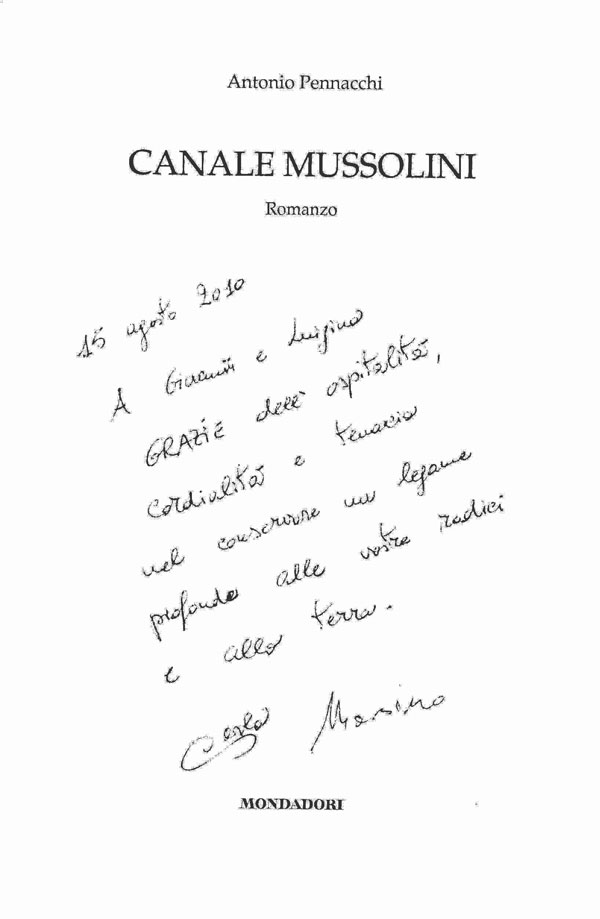 Antonio Pennacchi
CANALE MUSSOLINI
Romanzo
15 agosto 2010
A Giovanni e Luigina
GRAZIE dell'ospitalità,
cordialità e tenacia
nel conservare un legame
profondo alle vostre radici
e alla terra.
Carlo
MONDADORI